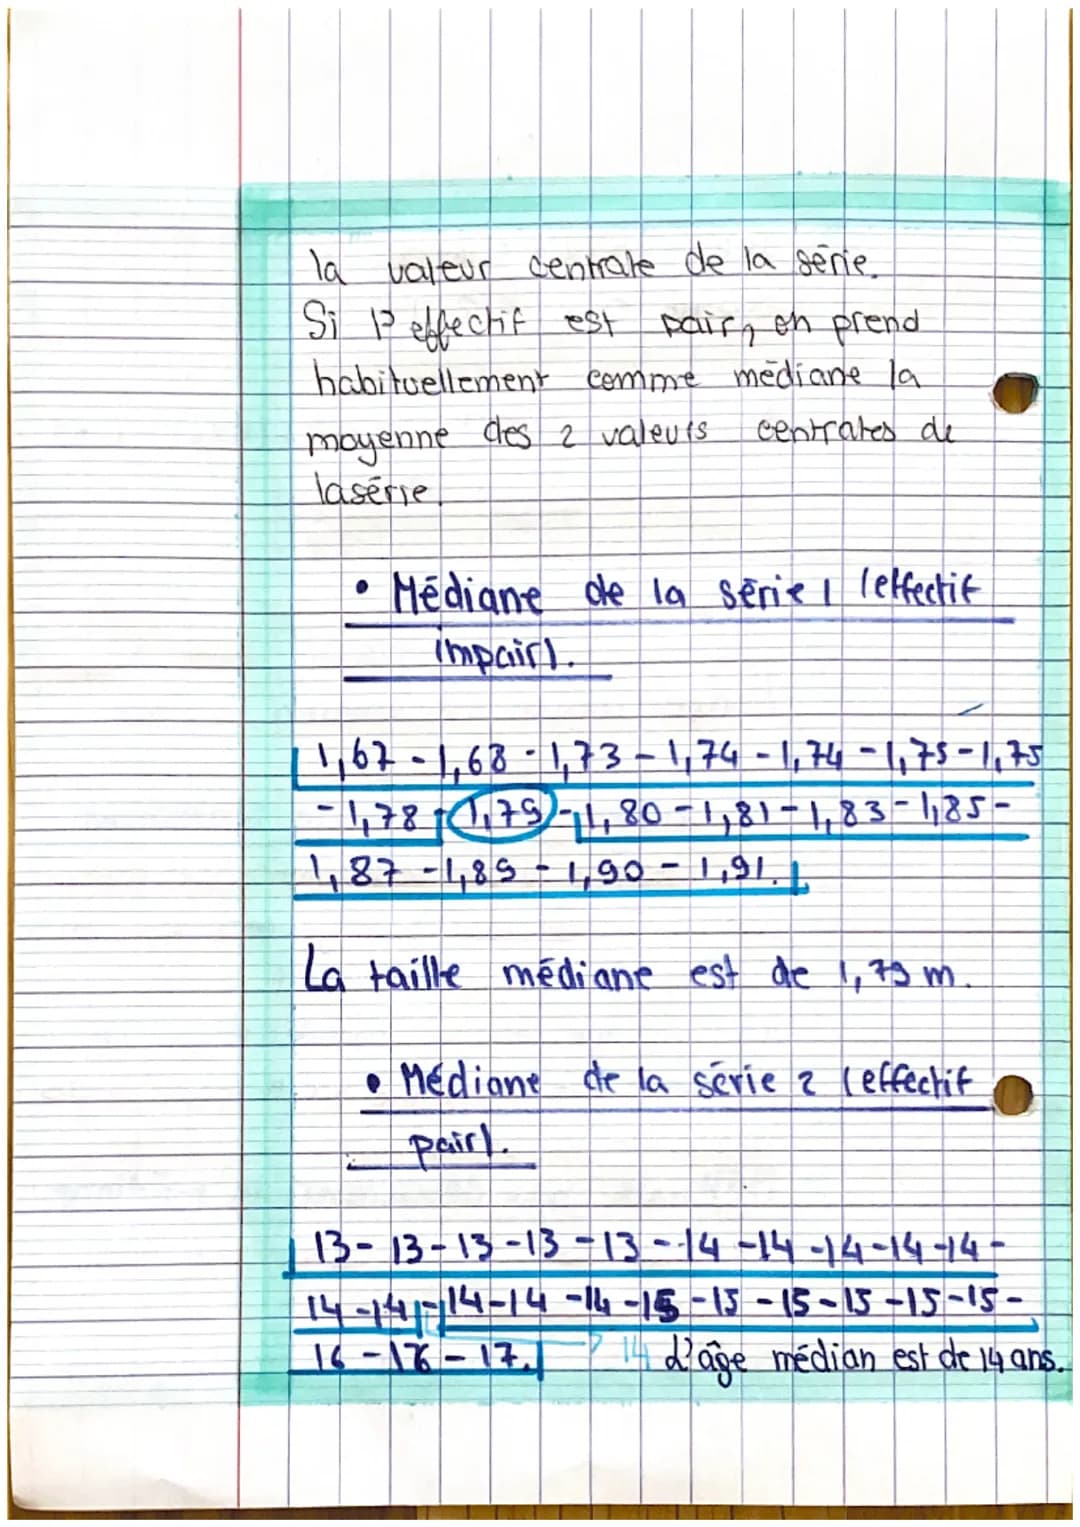 la valeur centrale de la série.
Si l'effectif est pair, on prend
habituellement comme médiane la
moyenne des 2 valeurs centrales de
lasérie.
• Médiane de la série 1 (effectif
impair).
1,67 - 1,68 - 1,73 - 1,74 - 1,74 - 1,75 - 1,75
- 1,78 - 1,79 - 1,80 - 1,81 - 1,83 - 1,85 -
1,87 - 1,89 - 1,90 - 1,91.
La taille médiane est de 1,79 m.
• Médiane de la série 2 (effectif
pair).
13 - 13 - 13 - 13 - 13 - 14 - 14 - 14 - 14 - 14 -
14 - 14 - 14 - 14 - 14 - 15 - 15 - 15 - 15 - 15 - 15 -
16 - 16 - 17. 14 L'âge médian est de 14 ans.